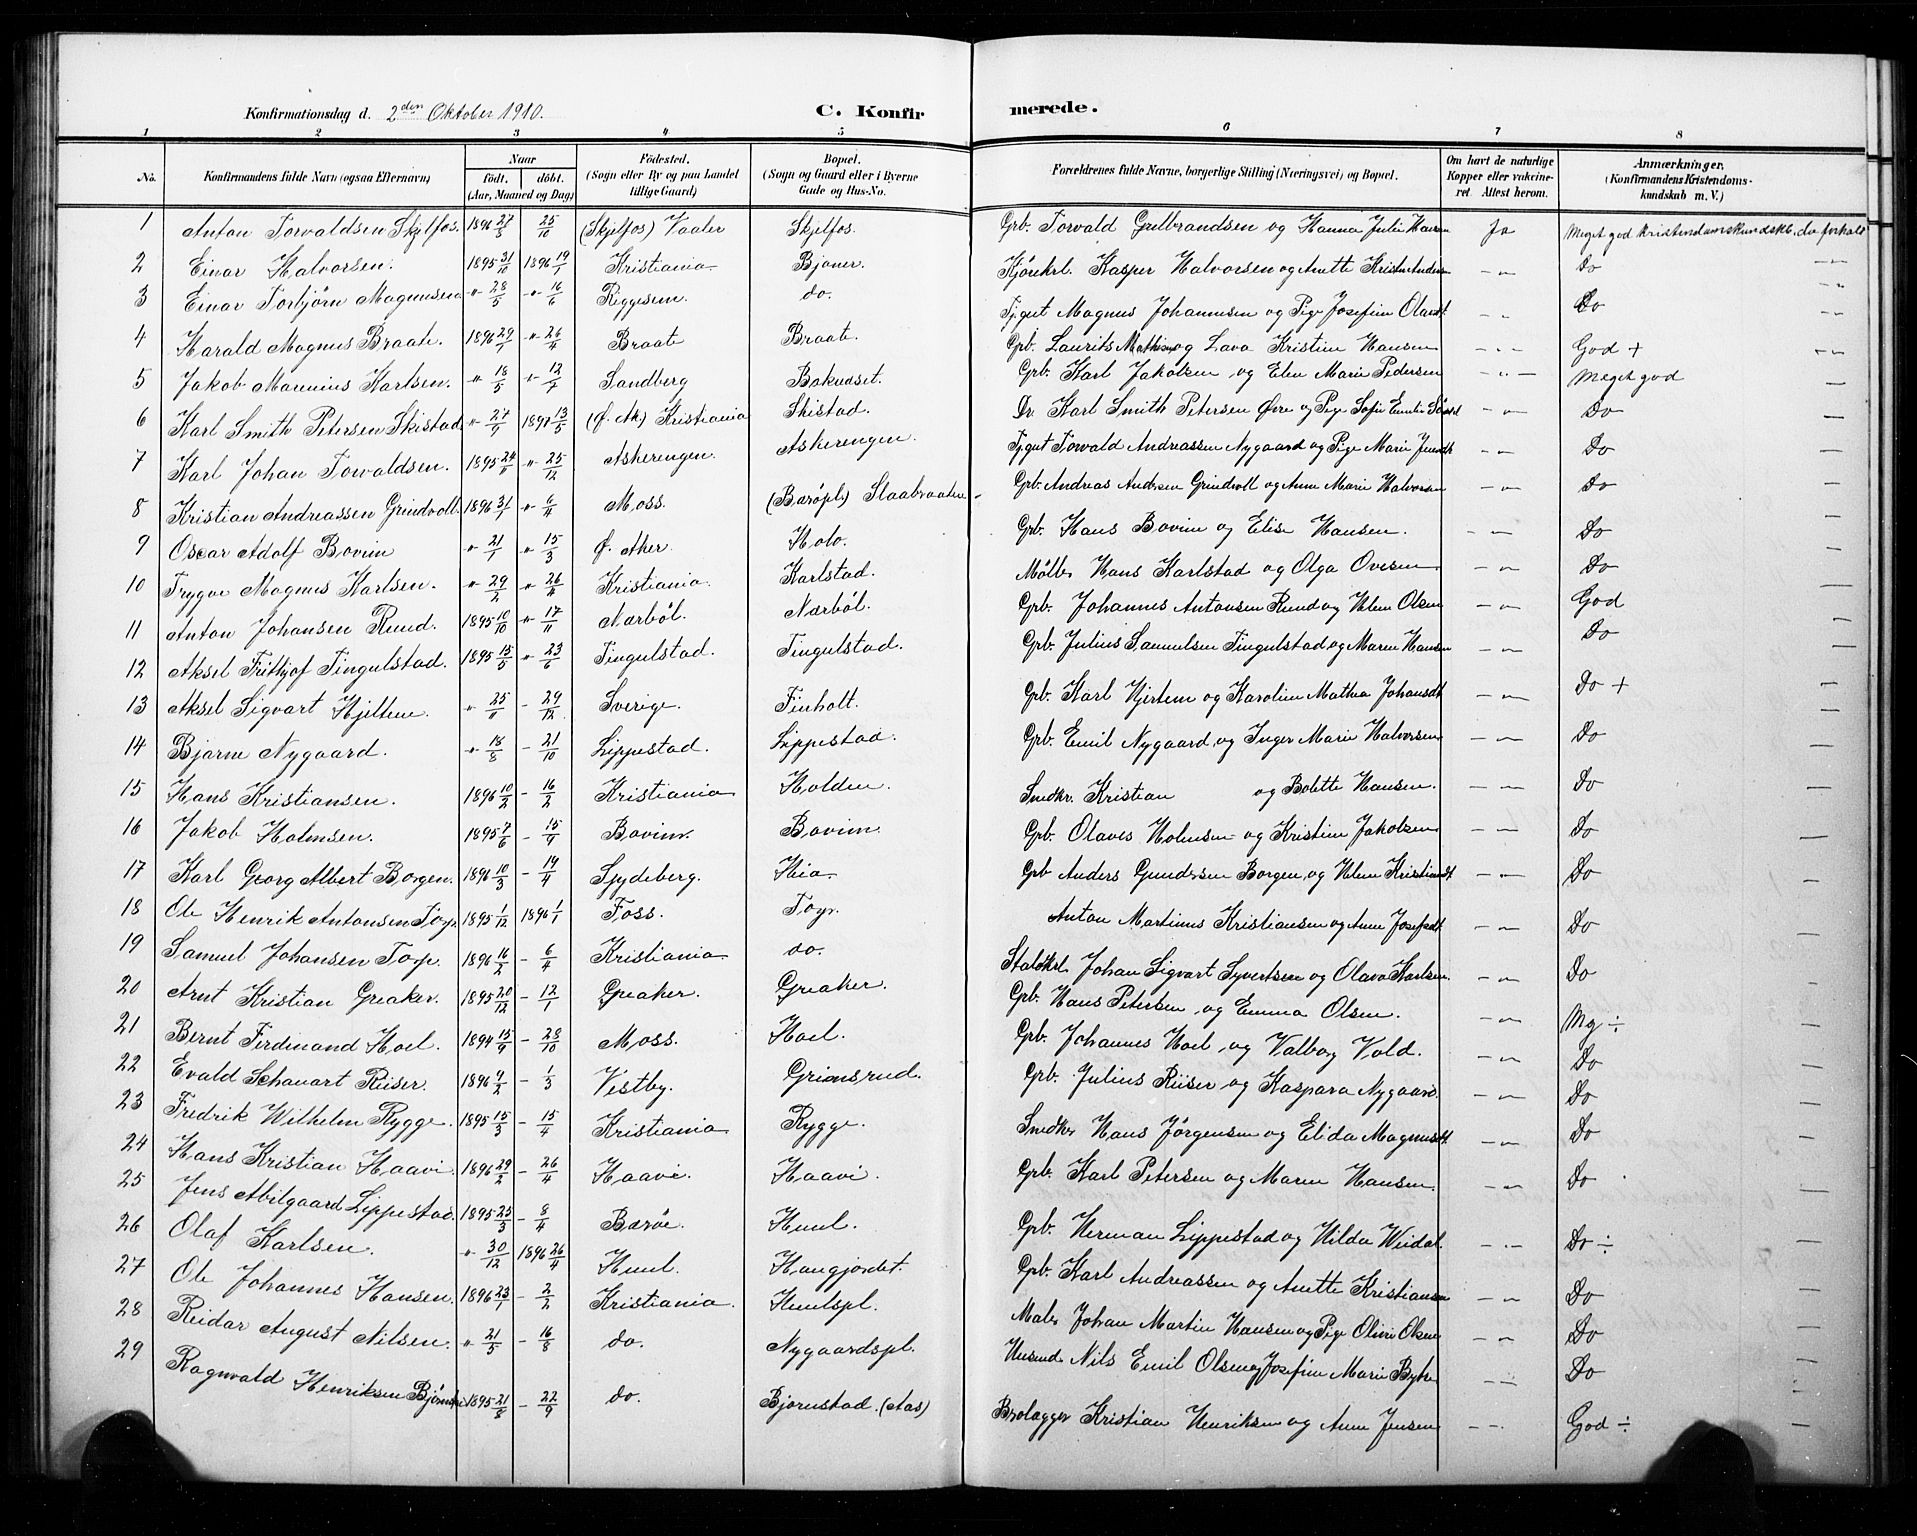 Konfirmationsdag d. 2den Oktober 1910. C. Konfirmerede.
1 2 3 4 5 6 7 8
No. Konfirmandens fulde Navn (ogsaa Efternavn). Naar födt. döbt. (Aar, Maaned og Dag) Födested. (Sogn eller By og paa Landet tillige Gaard) Bopæl. (Sogn og Gaard eller i Byerne Gade og Hus-No. Forældrenes fulde Navne, borgerlige Stilling (Næringsvei) og Bopæl. Om havt de naturlige Kopper eller vaccineret Attest herom. Anmærkninger. (Konfirmandens Kristendomskundskab m. V.)
1 Anton Torvaldsen Skjelfos. 1896 27/8 25/10 (Skjelfos) Vaaler Skjelfos. Grb. Torvald Gulbrandsen og Hanna Julie Hansen Ja Meget god Kristendomskundskb. do forhold
2 Einar Halvorsen. 1895 31/10 1896 19/1 Kristiania Bjoner. Kjörekrl. Kasper Halvorsen og Anette Kristin Anders - " - Do
3 Einar Torbjörn Magnusen - " - 28/5 - " - 16/6 Riggesem. do. Tjgut Magnus Johannesen og Pige Josefine Olavsdt - " - Do
4 Harald Magnus Braate. 1896 29/1 - " - 26/4 Braate Braate. Grb. Laurits Mathisen og Lava Kristine Hansen - " - God +
5 Jakob Marinius Karlsen. - " - 18/5 - " - 12/7 Sandberg Bakudset. Grb. Karl Jakobsen og Elen Marie Pedersen - " - Meget god
6 Karl Smith Petersen Skistad - " - 27/9 1897 13/5 (Ø. Ak) Kristiania Skistad. Dr. Karl Smith Petersen Øvre og Pige Sofie Emilie - " - Do
7 Karl Johan Torvaldsen. 1895 24/11 - " - 25/12 Askerengen. Askerengen. Tjgut Torvald Andreassen Nygaard og Pige Marie Jensdt - " - Do
8 Kristian Andreassen Grindvoll. 1896 31/1 - " - 6/4 Moss. (Baröpl.) Slaabraaten Grb. Andreas Andresen Grindvoll og Anne Marie Halvorsen - " - Do
9 Oscar Adolf Bovim - " - 21/1 - " - 15/3 Ø. Aker. Holo. Grb. Hans Bovim og Elise Hansen. - " - Do
10 Trygve Magnus Karlsen. - " - 29/2 - " - 26/4 Kristiania. Karlstad. Mölle Hans Karlstad og Olga Ovesen - " - Do
11 Anton Johansen Rund. 1895 10/10 - " - 17/11 Nærböl. Nærböl. Grb. Johannes Antonsen Rund og Helene Olsen - " - God
12 Aksel Frithjof Tingulstad. 1895 15/5 - " - 23/6 Tingulstad. Tingulstad. Grb. Julius Samuelsen Tingulstad og Maren Hansen - " - Do
13 Aksel Sigvart Hjeltene. - " - 25/11 - 29/12 Sverige. Finholt. Grb. Karl Hjertem og Karoline Mathea Johansdt - " - Do +
14 Bjarne Nygaard. - " - 18/8 - 21/10 Lippestad. Lippestad. Grb. Emil Nygaard, og Inger Marie Halvorsen - " - Do
15 Hans Kristiansen. 1896 10/2 - 16/2 Kristiania Holden. Snedkr. Kristian og Bolette Hansen. - " - Do
16 Jakob Holmsen. 1895 7/6 - 15/9 Bovim. Bovim. Grb. Olaves Holmsen og Kristine Jakobsen - " - Do
17 Karl Georg Albert Borgen. 1896 10/3 - 19/4 Spydeberg. Heia Grb Anders Gundersen Borgen, og Helene Kristiansdt. - " - Do
18 Ole Henrik Antonsen Torp. 1895 1/12 1896 1/1 Foss. Torp. Anton Martinus Kristiansen og Anne Josefsdt - " - Do
19 Samuel Johansen Torp. 1896 16/2 - 6/4 Kristiania do. Staldkrl. Johan Sigvart Syvertsen og Olava Karlsen - " - Do
20 Arnt Kristian Greaker. 1895 20/12 - 12/1 Greaker. Greaker. Grb. Hans Petersen, og Emma Olsen. - " - Mg ÷
21 Bernt Ferdinand Hoel. 1894 15/9 - 28/10 Moss. Hoel. Grb. Johannes Hoel og Valborg Vold. - " - Do
22 Evald Schauart Riiser. 1896 9/2 - 1/3 Vestby. Grimsrud. Grb. Julius Riiser og Kaspara Nygaard. - " - Do
23 Fredrik Wilhelm Rygge. 1895 15/3 - 15/4 Kristiania Rygge. Snedkr Hans Jörgensen og Elida Magnusdt. - " - Do
24 Hans Kristian Haavi. 1896 29/2 - 26/4 Haavi. Haavi. Grb. Karl Petersen og Maren Hansen. - " - Do
25 Jens Abilgaard Lippestad. 1895 25/3 - 8/4 Baröe. Huul. Grb. Herman Lippestad og Hilda Weidal. - " - Do ÷
26 Olaf Karlsen. - " - 30/12 1896 26/4 Huul. Haugjordet. Grb. Karl Andreassen og Anette Kristiansen - " - Do
27 Ole Johannes Hansen. 1896 23/1 - 2/2 Kristiania. Huulspl. Maler Johan Martin Hansen og Pige Olivie Olsen - " - Do
28 Reidar August Nilsen. - " - 21/5 - 16/8 do. Nygaardspl. Husmd. Nils Emil Olsen og Josefine Marie - " - Do
29 Ragnvald Henriksen 1895 21/8 - 22/9 do. Bjørnstad. (Aas) Brolægger Kristian Henriksen og Anne Jensen - " - God ÷